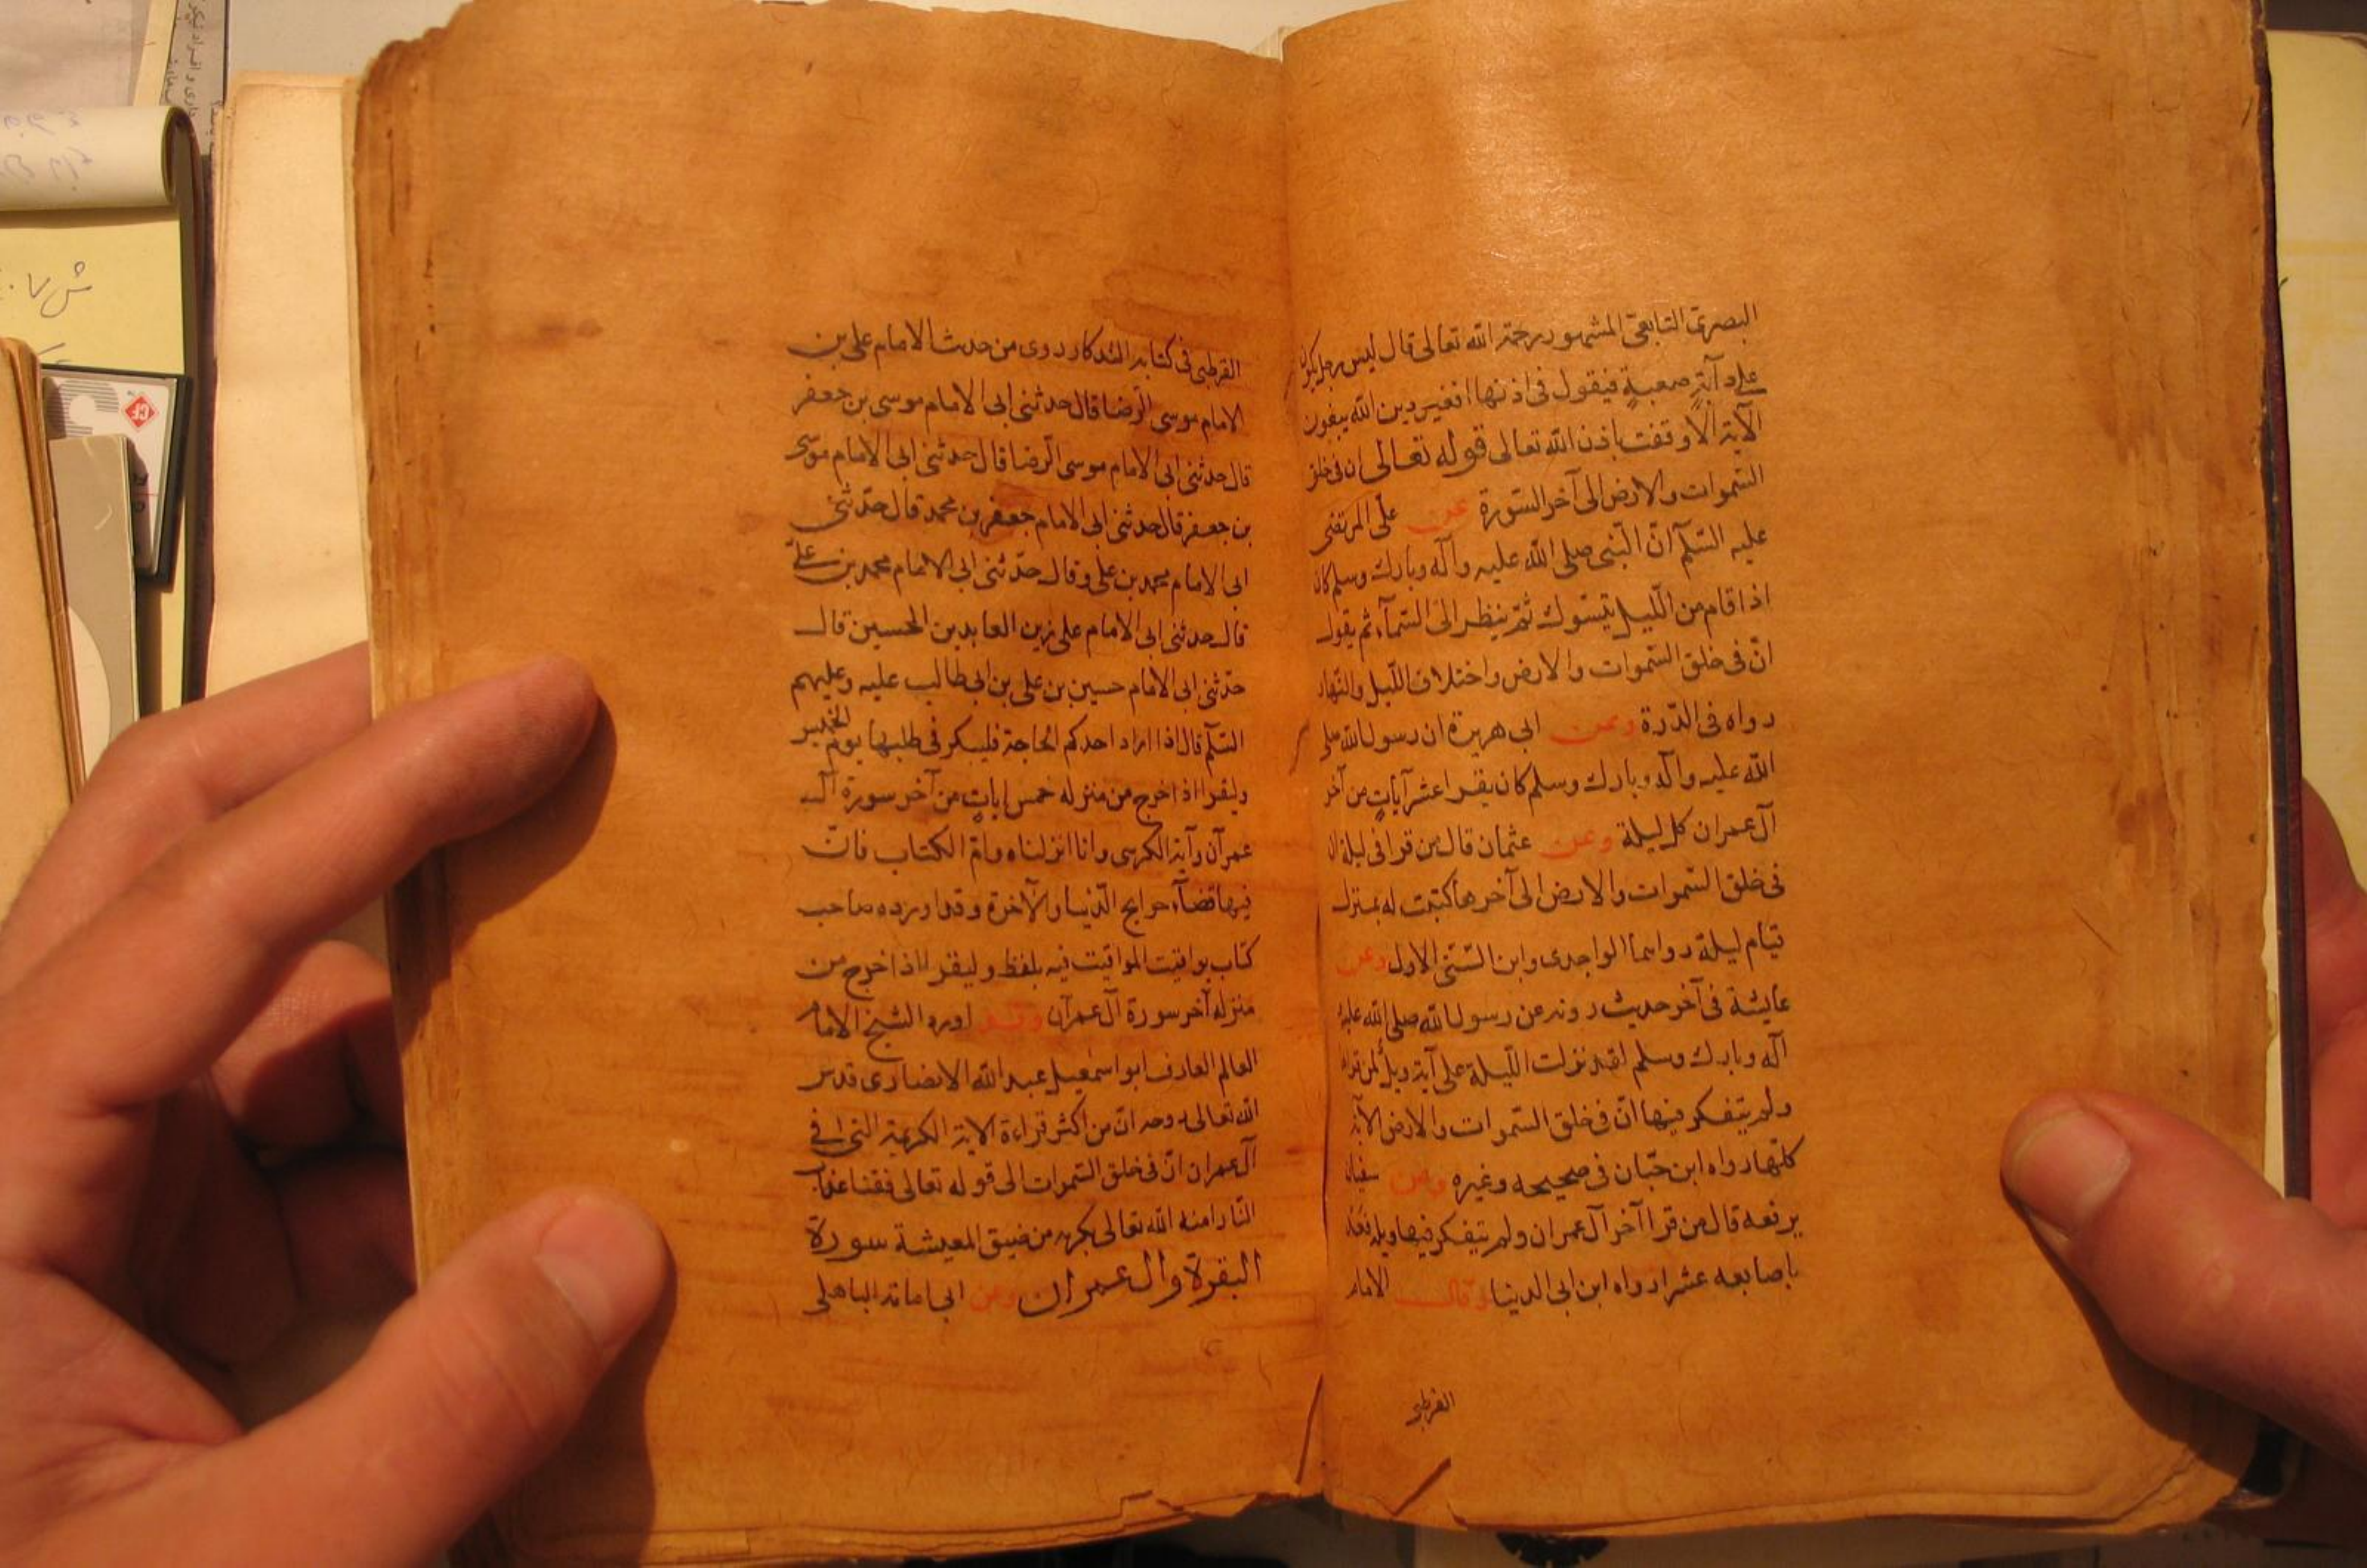 البصرى التابعى المشهور رحمة الله تعالى قال ليس رجل يكون
على دآبّةٍ صعبةٍ فيقول فى اذنها افغير دين الله يبغون
الآية الّا وقفت باذن الله تعالى قوله تعالى ان فى خلق
السّموات والارض الى آخر السّورة عن على المرتضى
عليه السّلم انّ النّبى صلى الله عليه وآله وبارك وسلم كان
اذا قام من اللّيل يتسوك ثمّ ينظر الى السّمآء ثم يقول
انّ فى خلق السّموات والارض واختلاف اللّيل والنّهار
رواه فى الدّرة وعن ابى هريرة ان رسول الله صلى
الله عليه وآله وبارك وسلم كان يقرا عشر آياتٍ من آخر
آل عمران كل ليلة وعن عثمان قال من قرا فى ليلة ان
فى خلق السّموات والارض الى آخرها كتبت له بمنزلة
قيام ليلة رواهما الواحدى وابن السّنّى الاول وعن
عايشة فى آخر حديث روته عن رسول الله صلى الله عليه
آله وبارك وسلم لقد نزلت اللّيلة على آية ويلٌ لمن قراها
ولم يتفكر فيها انّ فى خلق السّموات والارض الآية
كلّها رواه ابن حبّان فى صحيحه وغيره وعن سفيان
يرفعه قال من قرا آخر آل عمران ولم يتفكر فيها ويله فعدّ
باصابعه عشرا رواه ابن ابى الدنيا وقال الامام
القرطبى
القرطبى فى كتابه التذكار روى من حدث الامام على بن
الامام موسى الرّضا قال حدثنى ابى الامام موسى بن جعفر
قال حدثنى ابى الامام موسى الرّضا قال حدثنى ابى الامام موسى
بن جعفر قال حدثنى ابى الامام جعفر بن محمد قال حدّثنى
ابى الامام محمد بن على وقال حدّثنى ابى الامام محمد بن علىّ
قال حدثنى ابى الامام على زين العابدين الحسين قال
حدّثنى ابى الامام حسين بن على بن ابى طالب عليه وعليهم
السّلم قال اذا اراد احدكم الحاجة فليبكر فى طلبها يوم الخميس
وليقرا اذا خرج من منزله خمس اياتٍ من آخر سورة آل
عمرآن وآية الكرسى وانا انزلناه وامّ الكتاب فانّ
فيها قضآء حوايج الدّنيا والآخرة وقد اورده صاحب
كتاب يواقيت المواقيت فيه بلفظ وليقرا اذا خرج من
منزله آخر سورة آل عمرآن وقد اورد الشيخ الامام
العالم العارف ابو اسمعيل عبد الله الانصارى قدس
الله تعالى روحه انّ من اكثر قراءة الاية الكريمة التى فى
آل عمران انّ فى خلق السّموات الى قوله تعالى فقنا عذاب
النّار امنه الله تعالى بكرمه من ضيق المعيشة سورة
البقرة وال عمران وعن ابى امامة الباهلى